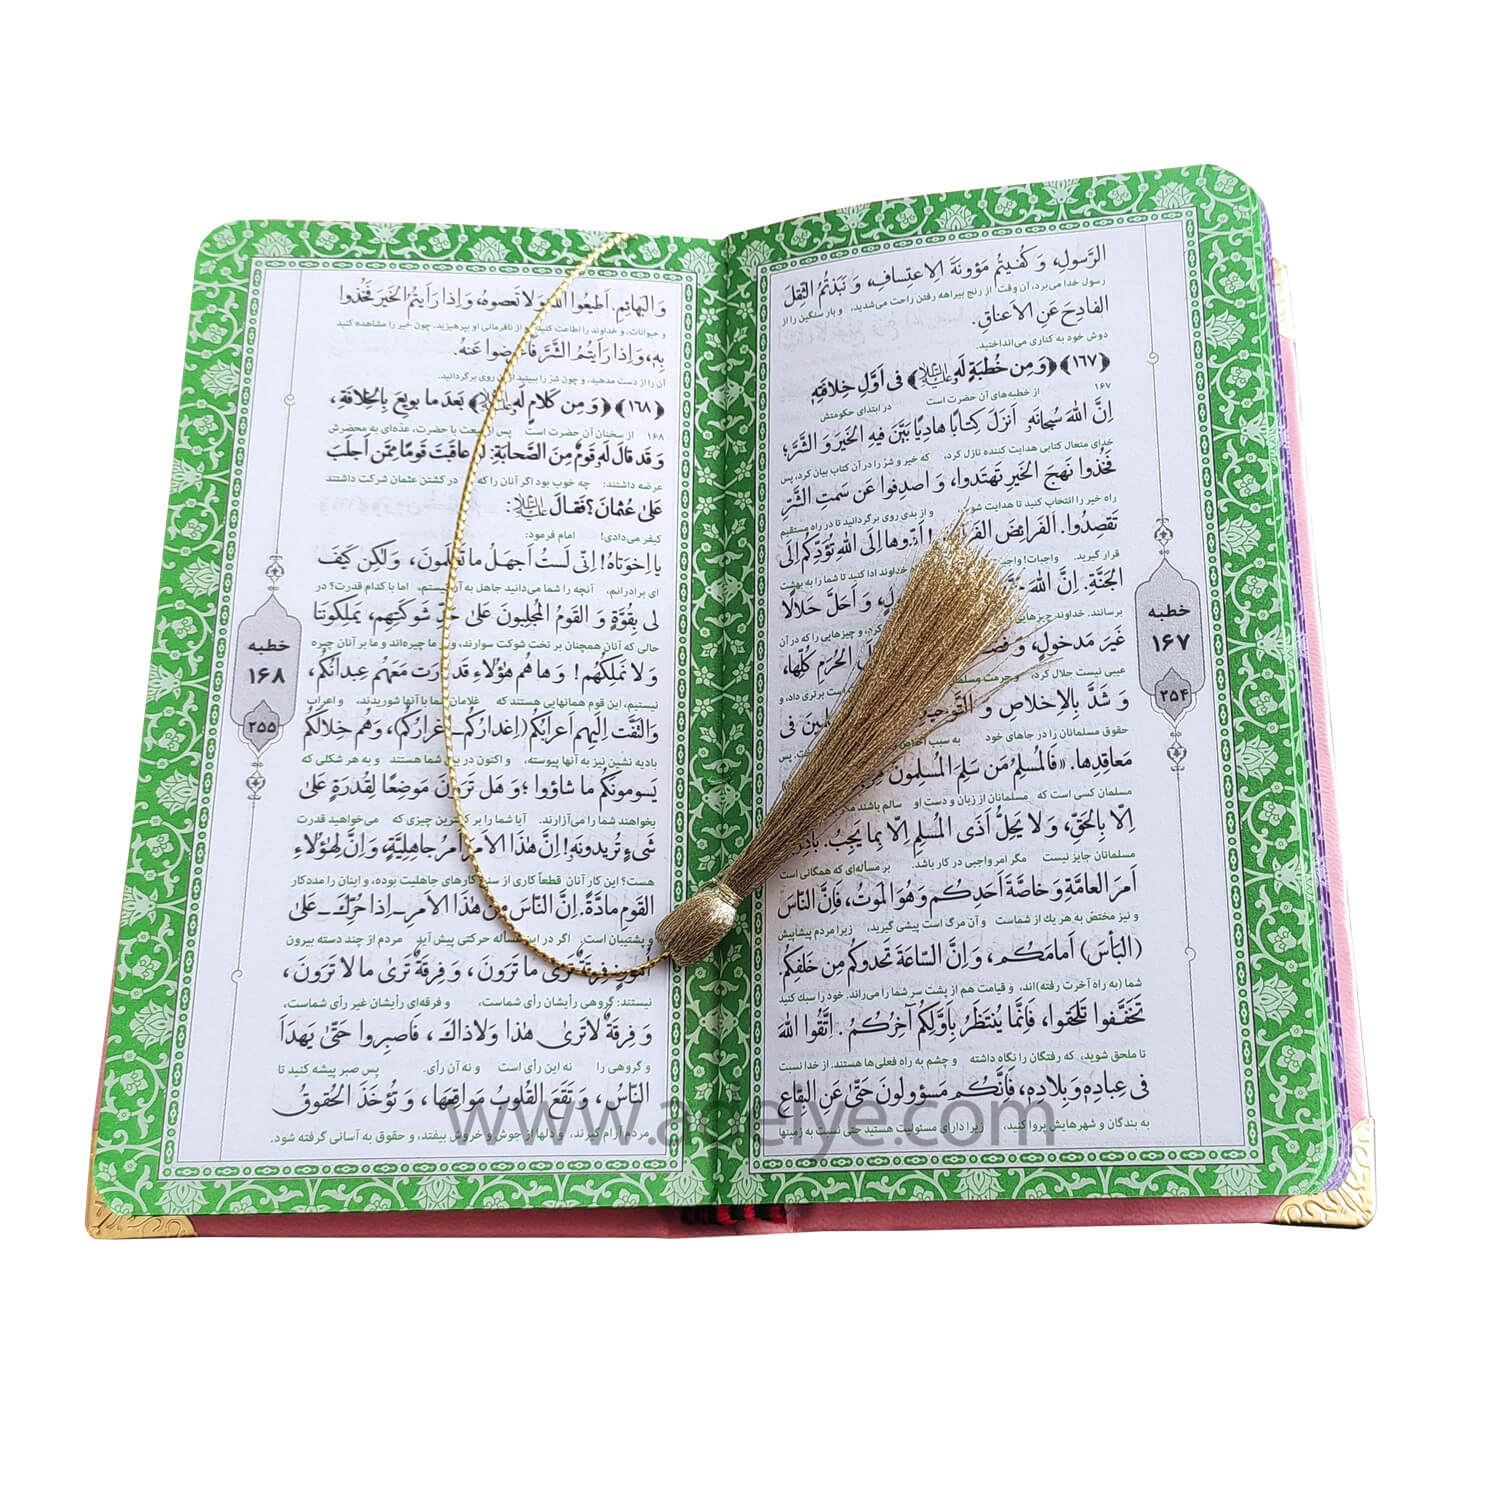 الرَّسولِ، وَ كُفيتُم مَؤونَةَ الاِعتِسافِ، وَ نَبَذتُمُ الثِّقلَ
رسول خدا می‌برد، آن وقت از رنج بیراهه رفتن راحت می‌شدید، و بار سنگین را از
الفادِحَ عَنِ الاَعناقِ.
دوش خود به کناری می‌انداختید.
﴿۱۶۷﴾ ﴿وَ مِن خُطبَةٍ لَهُ علیه‌السلام﴾ فی اَوَّلِ خِلافَتِهِ
۱۶۷ از خطبه‌های آن حضرت است در ابتدای حکومتش
اِنَّ اللهَ سُبحانَهُ اَنزَلَ كِتابًا هادِيًا بَيَّنَ فيهِ الخَيرَ وَ الشَّرَّ؛
خدای متعال کتابی هدایت کننده نازل کرد، که خیر و شرّ را در آن کتاب بیان کرد، پس
فَخُذوا نَهجَ الخَيرِ تَهتَدوا، وَ اصدِفوا عَن سَمتِ الشَّرِّ
راه خیر را انتخاب کنید تا هدایت شوید، و از بدی روی برگردانید تا در راه مستقیم
تَقصِدوا. اَلفَرائِضَ الفَرائِضَ! اَدّوها اِلَى اللهِ تُؤَدِّكُم اِلَى
قرار گیرید. واجبات! واجبات خداوند ادا کنید تا شما را به بهشت
الجَنَّةِ. اِنَّ اللهَ وَ اَحَلَّ حَلالًا
برسانند. خداوند چیزهایی را کرد، و چیزهایی را که در آن
غَيرَ مَدخولٍ، وَ الحُرَمِ كُلِّها،
عیبی نیست حلال کرد، و حرمت است برتری داد، و
وَ شَدَّ بِالاِخلاصِ وَ التَّوحيدِ فی
حقوق مسلمانان را در جاهای خود به سبب پس
مَعاقِدِها. «فَالمُسلِمُ مَن سَلِمَ المُسلِمونَ مِن
مسلمان کسی است که مسلمانان از زبان و دست او سالم باشند مگر
اِلّا بِالحَقِّ، وَ لا يَحِلُّ اَذَى المُسلِمِ اِلّا بِما يَجِبُ.
مسلمانان جایز نیست مگر امر واجبی در کار باشد. بر مسأله‌ای که همگانی است
اَمرَ العامَّةِ وَ خاصَّةَ اَحَدِكُم وَ هُوَ المَوتُ، فَاِنَّ النّاسَ
و نیز مختصّ به هر یک از شماست و آن مرگ است پیشی گیرید، زیرا مردم پیشاپیش
(البَأسَ) اَمامَكُم، وَ اِنَّ السّاعَةَ تَحدوكُم مِن خَلفِكُم.
شما (به راه آخرت رفته)اند، و قیامت هم از پشت سر شما را می‌راند. خود را سبک کنید
تَخَفَّفوا تَلحَقوا، فَاِنَّما يُنتَظَرُ بِاَوَّلِكُم آخِرُكُم. اِتَّقُوا اللهَ
تا ملحق شوید، که رفتگان را نگاه داشته و چشم به راه فعلی‌ها هستند. از خدا نسبت
فی عِبادِهِ وَ بِلادِهِ، فَاِنَّكُم مَسؤولونَ حَتّىٰ عَنِ البِقاعِ
به بندگان و شهرهایش پروا کنید، زیرا دارای مسئولیت هستید حتی نسبت به زمینها
خطبه
۱۶۷
۲۵۴
وَ البَهائِمِ. اَطيعُوا اللهَ وَ لا تَعصوهُ، وَ اِذا رَاَيتُمُ الخَيرَ فَخُذوا
و حیوانات، و خداوند را اطاعت کنید و از نافرمانی او بپرهیزید، چون خیر را مشاهده کنید
بِهِ، وَ اِذا رَاَيتُمُ الشَّرَّ فَاَعرِضوا عَنهُ.
آن را از دست مدهید، و چون شرّ را ببینید از آن روی برگردانید.
﴿۱۶۸﴾ ﴿وَ مِن كَلامٍ لَهُ علیه‌السلام﴾ بَعدَ ما بويِعَ بِالخِلافَةِ،
۱۶۸ از سخنان آن حضرت است پس از بیعت با حضرت، عدّه‌ای به محضرش
وَ قَد قالَ لَهُ قَومٌ مِنَ الصَّحابَةِ: لَو عاقَبتَ قَومًا مِمَّن اَجلَبَ
عرضه داشتند: چه خوب بود اگر آنان را که در کشتن عثمان شرکت داشتند
عَلىٰ عُثمانَ؟ فَقالَ علیه‌السلام:
کیفر می‌دادی! امام فرمود:
يا اِخوَتاهُ! اِنّی لَستُ اَجهَلُ ما تَعلَمونَ، وَ لٰكِن كَيفَ
ای برادرانم، آنچه را شما می‌دانید جاهل به آن نیستم، اما با کدام قدرت؟ در
لی بِقُوَّةٍ وَ القَومُ المُجلِبونَ عَلىٰ حَدِّ شَوكَتِهِم، يَملِكونَنا
حالی که آنان همچنان بر تخت شوکت سوارند، و بر ما چیره‌اند و ما بر آنان چیره
وَ لا نَملِكُهُم! وَ ها هُم هٰؤُلاءِ قَد ثارَت مَعَهُم عِبدانُكُم،
نیستیم، این قوم همانهایی هستند که غلامان شما با آنها شوریدند، و اعراب
وَ التَفَّت اِلَيهِم اَعرابُكُم (اِغدارُكُم ـ غرارُكُم)، وَ هُم خِلالَكُم
بادیه نشین نیز به آنها پیوسته، و اکنون در بین شما هستند و به هر شکلی که
يَسومونَكُم ما شاؤوا؛ وَ هَل تَرَونَ مَوضِعًا لِقُدرَةٍ عَلىٰ
بخواهند شما را می‌آزارند. آیا شما را بر کمترین چیزی که می‌خواهید قدرت
شَیءٍ تُريدونَهُ! اِنَّ هٰذَا الاَمرَ اَمرُ جاهِلِيَّةٍ، وَ اِنَّ لِهٰؤُلاءِ
هست؟ این کار آنان قطعاً کاری از سنخ کارهای جاهلیت بوده، و اینان را مددکار
القَومِ مادَّةً. اِنَّ النّاسَ مِن هٰذَا الاَمرِ ـ اِذا حُرِّكَ ـ عَلىٰ
و پشتیبان است. اگر در این مسأله حرکتی پیش آید مردم از چند دسته بیرون
اُمورٍ: فِرقَةٌ تَرىٰ ما تَرَونَ، وَ فِرقَةٌ تَرىٰ ما لا تَرَونَ،
نیستند: گروهی رأیشان رأی شماست، و فرقه‌ای رأیشان غیر رأی شماست،
وَ فِرقَةٌ لا تَرىٰ هٰذا وَ لا ذاكَ، فَاصبِروا حَتّىٰ يَهدَاَ
و گروهی را نه این رأی است و نه آن رأی. پس صبر پیشه کنید تا
النّاسُ، وَ تَقَعَ القُلوبُ مَواقِعَها، وَ تُؤخَذَ الحُقوقُ
مردم آرام گیرند، و دلها از جوش و خروش بیفتد، و حقوق به آسانی گرفته شود.
خطبه
۱۶۸
۲۵۵